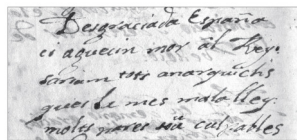 Desgraciada España
ci aquein mor al Rey
sariam tots anarquichs
ques le mes mala lley
molts pares